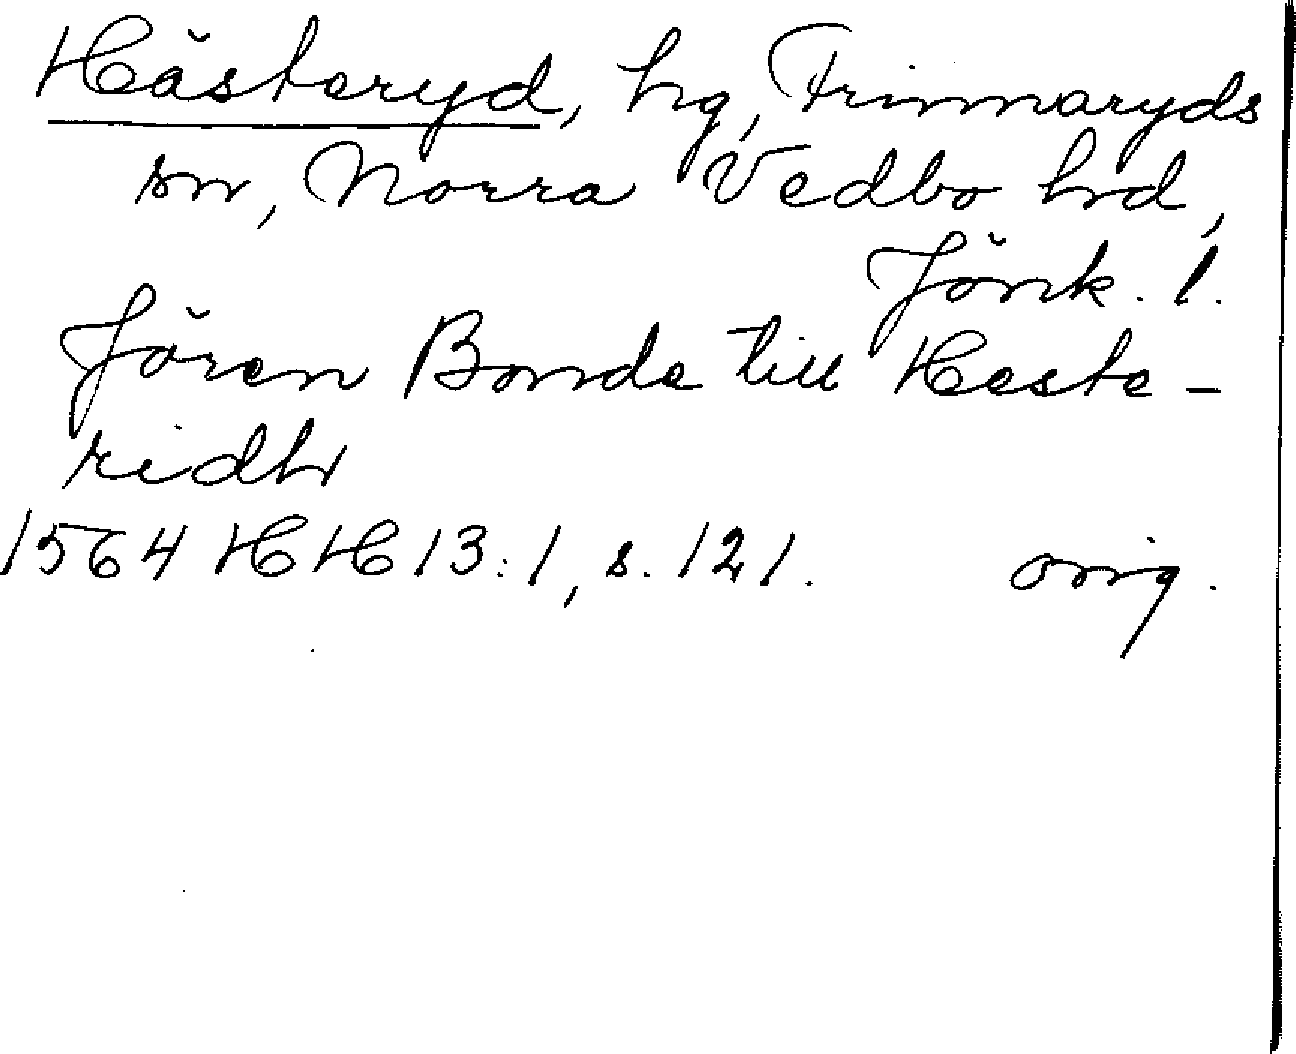 Hästeryd, hg, Frinnaryds
sn, Norra Vedbo hd,
Jönk. l.
Jören Bonde till Heste-
ridh
1564 HH 13:1, s. 121. orig.